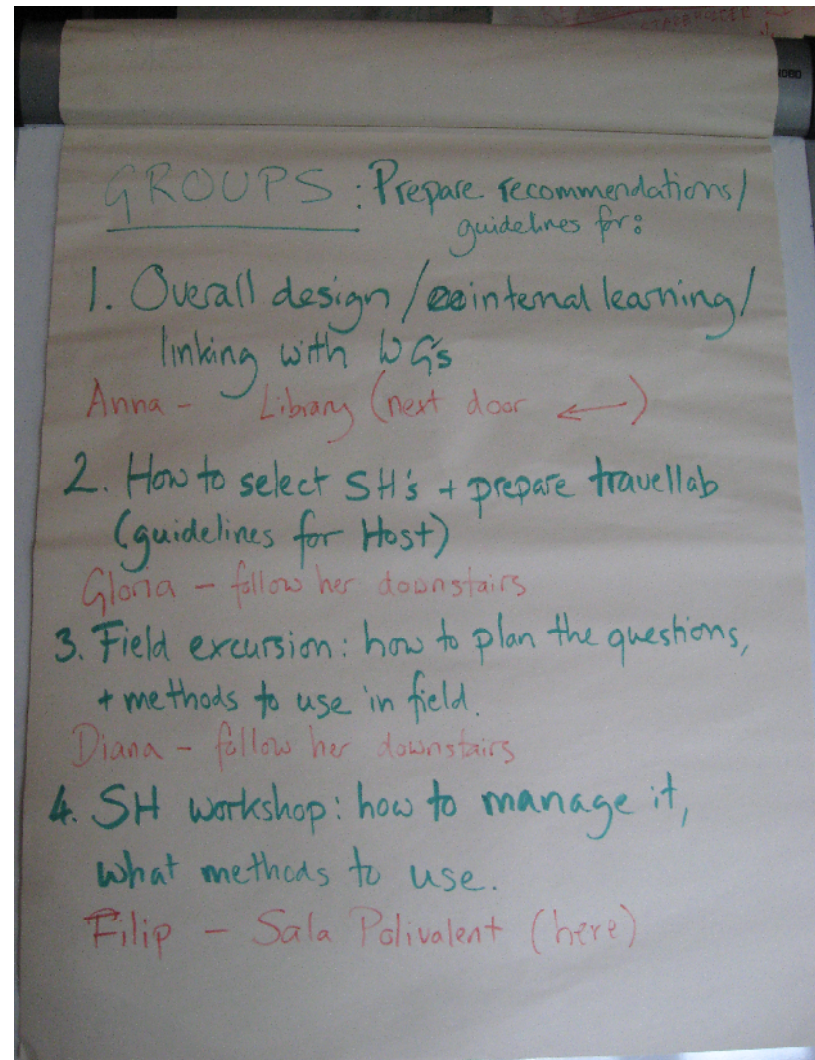 STAKEHOLDER
GROUPS: Prepare recommendations/
guidelines for:
1. Overall design / internal learning/
linking with WG's
Anna - Library (next door ←)
2. How to select SH's + prepare travellab
(guidelines for Host)
Gloria - follow her downstairs
3. Field excursion: how to plan the questions,
+ methods to use in field.
Diana - follow her downstairs
4. SH workshop: how to manage it,
what methods to use.
Filip - Sala Polivalent (here)